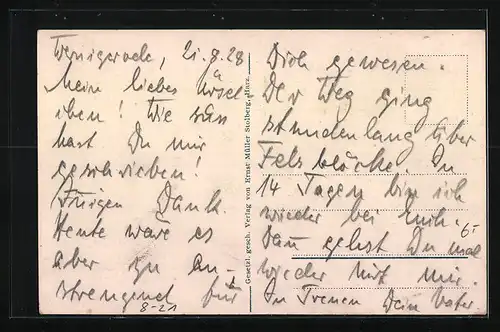 Wernigerode, 21.8.28
Mein liebes Ursel
chen! Wie süss
hast Du mir
geschrieben!
Innigen Dank.
Heute wäre es
aber zu an-
strengend für
8-21
Gesetzl. gesch. Verlag von Ernst Müller Stolberg, Harz.
Dich gewesen.
Der Weg ging
stundenlang über
Felsblöcke. In
14 Tagen bin ich
wieder bei Euch.
Dann gehst Du mal
wieder mit mir.
In Treuen Dein Vater.
6,-